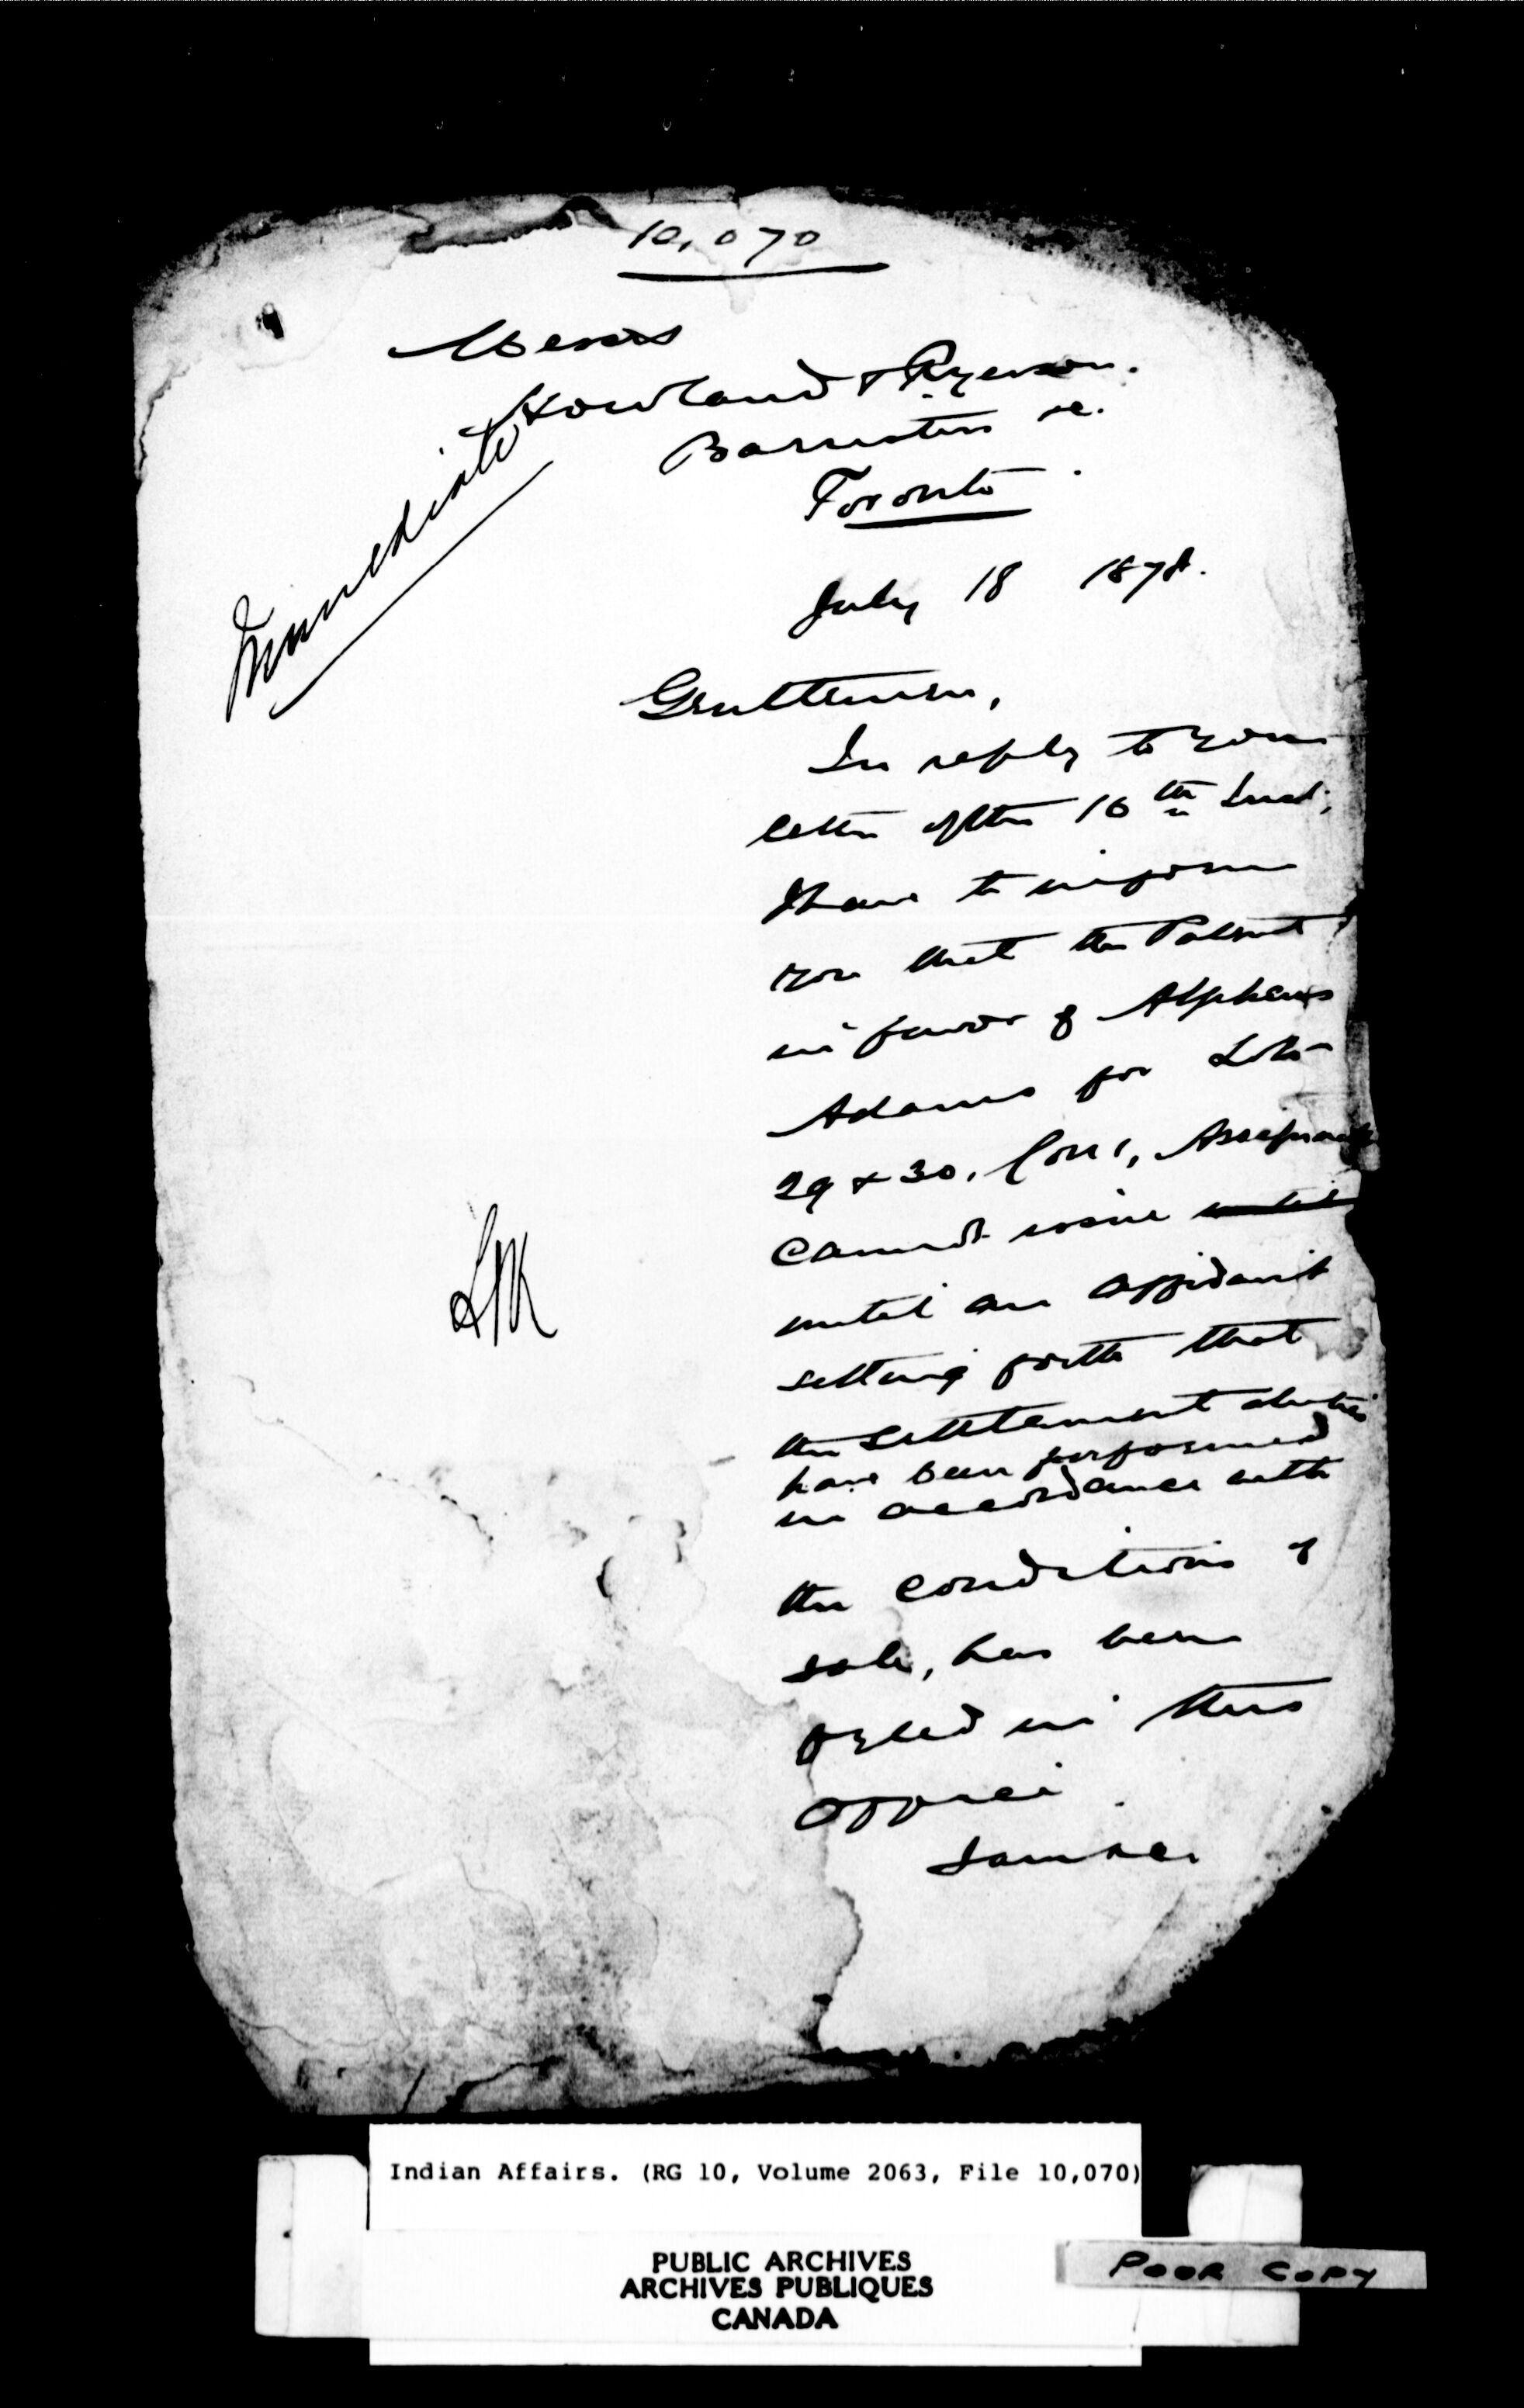 10,070
Messrs
Howland & Ryerson.
Barristers &c.
Toronto
Immediate
July 18 1878.
Gentlemen,
In reply to your
letter of the 16th Inst,
I have to inform
you that the Patent
in favor of Alpheus
Adams for Lots
29 & 30, Con 1, Assiginack
cannot issue until
until an affidavit
setting forth that
the settlement duties
have been performed
in accordance with
the conditions of
sale, has been
fyled in this
office.
Indian Affairs. (RG 10, Volume 2063, File 10,070)
PUBLIC ARCHIVES
ARCHIVES PUBLIQUES
CANADA
POOR COPY